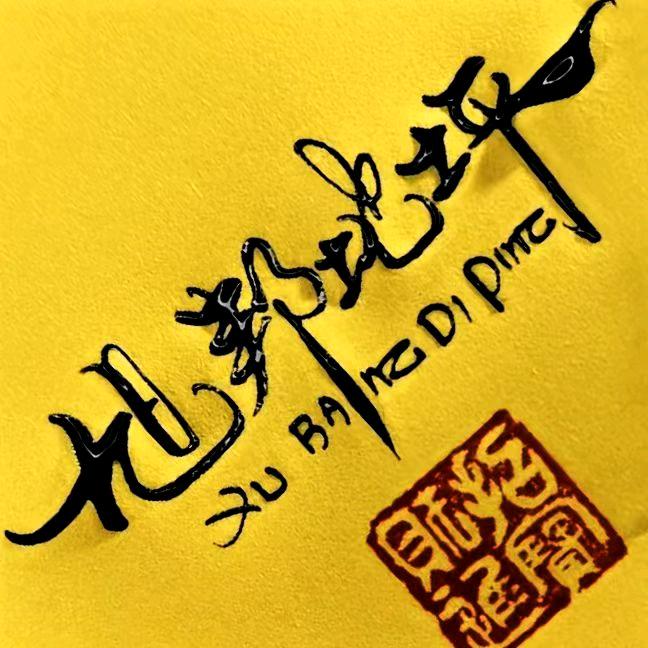 旭邦地坪
XU BANG DI PING